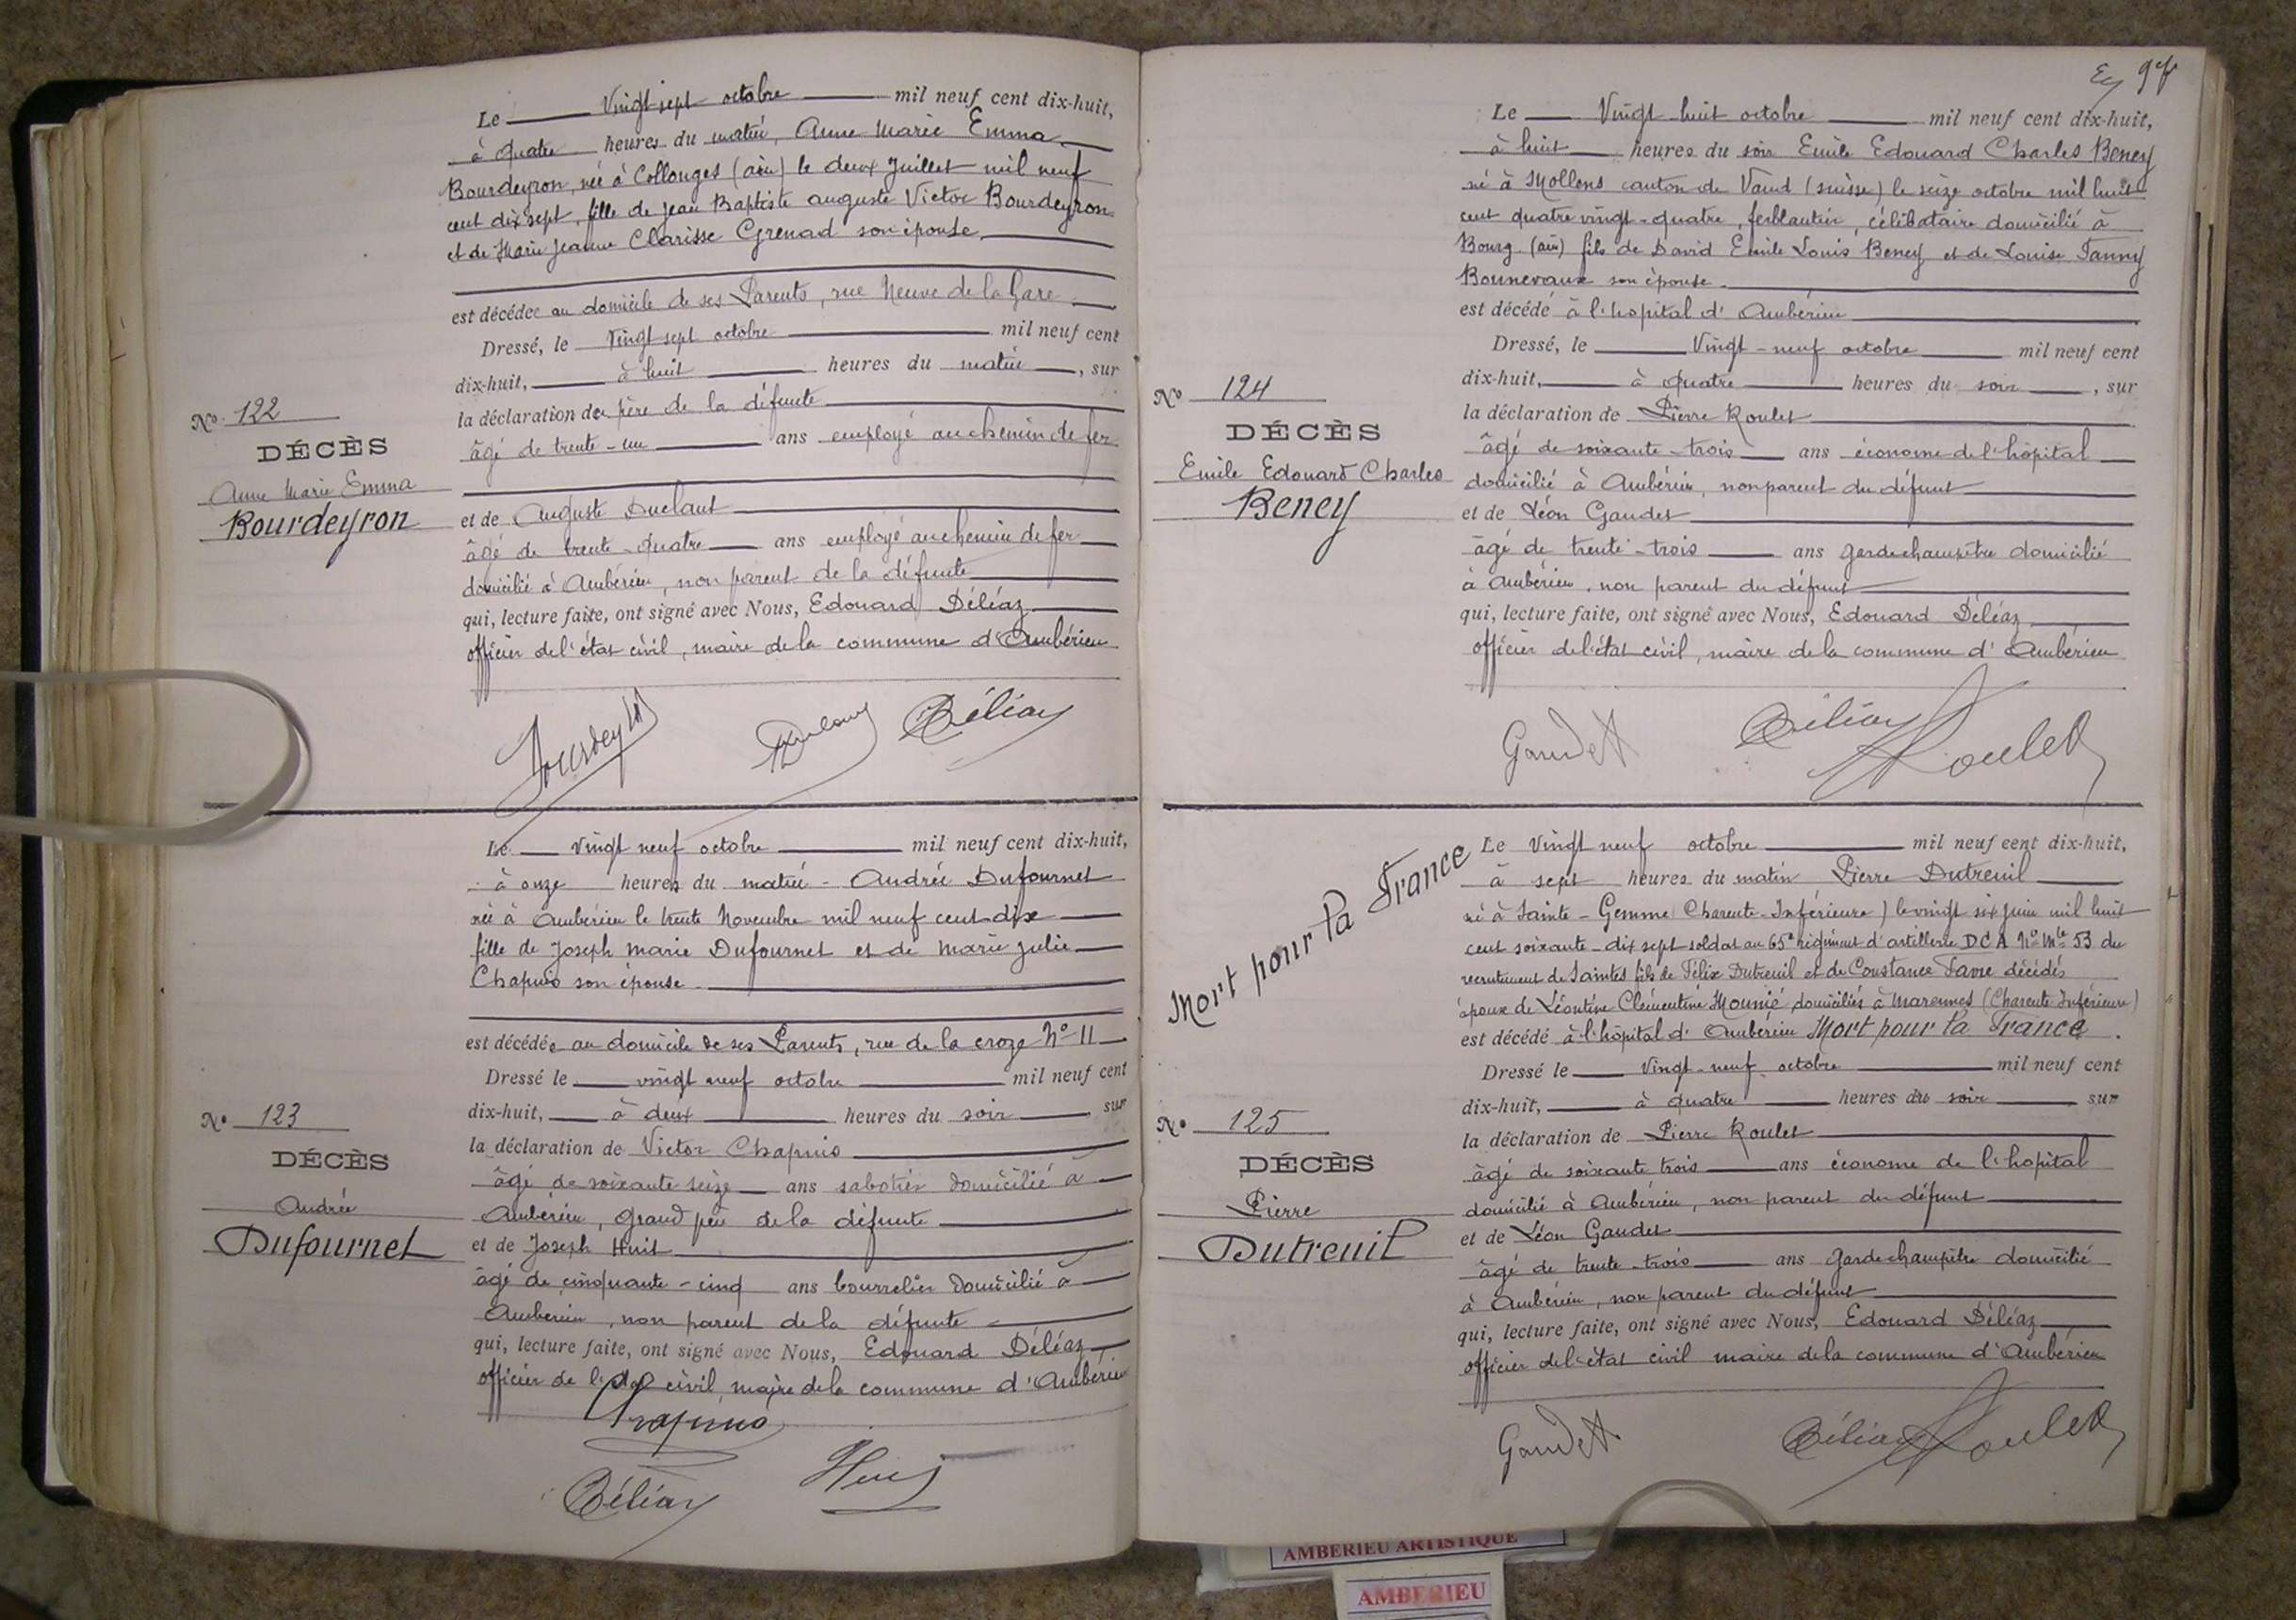 Le Vingt sept octobre mil neuf cent dix-huit,
à quatre heures du matin, Anne Marie Emma
Bourdeyron, née à Collonges (ain) le deux Juillet mil neuf
cent dix sept, fille de Jean Baptiste auguste Victor Bourdeyron
et de Marie Jeanne Clarisse Grenad son épouse
est décédée au domicile de ses Parents, rue Neuve de la Gare
Dressé, le Vingt sept octobre mil neuf cent
dix-huit, à huit heures du matin, sur
la déclaration du père de la défunte
âgé de trente-un ans employé au chemin de fer
et de Auguste Duclaut
âgé de trente-quatre ans employé au chemin de fer
domicilié à Ambérieu, non parent de la défunte
qui, lecture faite, ont signé avec Nous, Edouard Déléaz
officier de l'état civil, maire de la commune d'Ambérieu
No. 122
DÉCÈS
Anne Marie Emma
Bourdeyron
Déléaz
Le vingt neuf octobre mil neuf cent dix-huit,
à onze heures du matin - Andrée Dufournet
née à Ambérieu le trente Novembre mil neuf cent dix
fille de Joseph Marie Dufournet et de Marie Julie
Chapuis son épouse
est décédée au domicile de ses Parents, rue de la croze No 11
Dressé le vingt neuf octobre mil neuf cent
dix-huit, à deux heures du soir sur
la déclaration de Victor Chapuis
âgé de soixante seize ans sabotier domicilié à
Ambérieu, grand père de la défunte
et de Joseph Huit
âgé de cinquante-cinq ans bourrelier domicilié à
Ambérieu, non parent de la défunte
qui, lecture faite, ont signé avec Nous, Edouard Déléaz
officier de l'état civil, maire de la commune d'Ambérieu
No. 123
DÉCÈS
Andrée
Dufournet
Chapuis
Déléaz
97
Le Vingt-huit octobre mil neuf cent dix-huit,
à huit heures du soir Emile Edouard Charles Beney
né à Mollens canton de Vaud (suisse) le seize octobre mil huit
cent quatre vingt-quatre, ferblantier, célibataire domicilié à
Bourg (ain) fils de David Emile Louis Beney et de Louise Fanny
Bonnevaux son épouse
est décédé à l'hopital d'Ambérieu
Dressé, le Vingt-neuf octobre mil neuf cent
dix-huit, à quatre heures du soir, sur
la déclaration de Pierre Roulet
âgé de soixante-trois ans économe de l'hôpital
domicilié à Ambérieu, non parent du défunt
et de Léon Gaudet
âgé de trente-trois ans garde champêtre domicilié
à Ambérieu, non parent du défunt
qui, lecture faite, ont signé avec Nous, Edouard Déléaz
officier de l'état civil, maire de la commune d'Ambérieu
No 124
DÉCÈS
Emile Edouard Charles
Beney
Gaudet
Déléaz
Roulet
Mort pour la France
Le Vingt neuf octobre mil neuf cent dix-huit,
à sept heures du matin Pierre Dutreuil
né à Sainte-Gemme (Charente-Inférieure) le vingt six juin mil huit
cent soixante-dix sept soldat au 65e régiment d'artillerie DCA No Mle 53 du
recrutement de Saintes fils de Félix Dutreuil et de Constance Favre décédés
époux de Léontine Clémentine Mounié, domiciliés à Marennes (Charente Inférieure)
est décédé à l'hôpital d'Ambérieu Mort pour la France.
Dressé le Vingt-neuf octobre mil neuf cent
dix-huit, à quatre heures du soir sur
la déclaration de Pierre Roulet
âgé de soixante trois ans économe de l'hopital
domicilié à Ambérieu, non parent du défunt
et de Léon Gaudet
âgé de trente-trois ans garde champêtre domicilié
à Ambérieu, non parent du défunt
qui, lecture faite, ont signé avec Nous, Edouard Déléaz
officier de l'état civil maire de la commune d'Ambérieu
No. 125
DÉCÈS
Pierre
Dutreuil
Gaudet
Déléaz
Roulet
AMBERIEU ARTISTIQUE
AMBERIEU